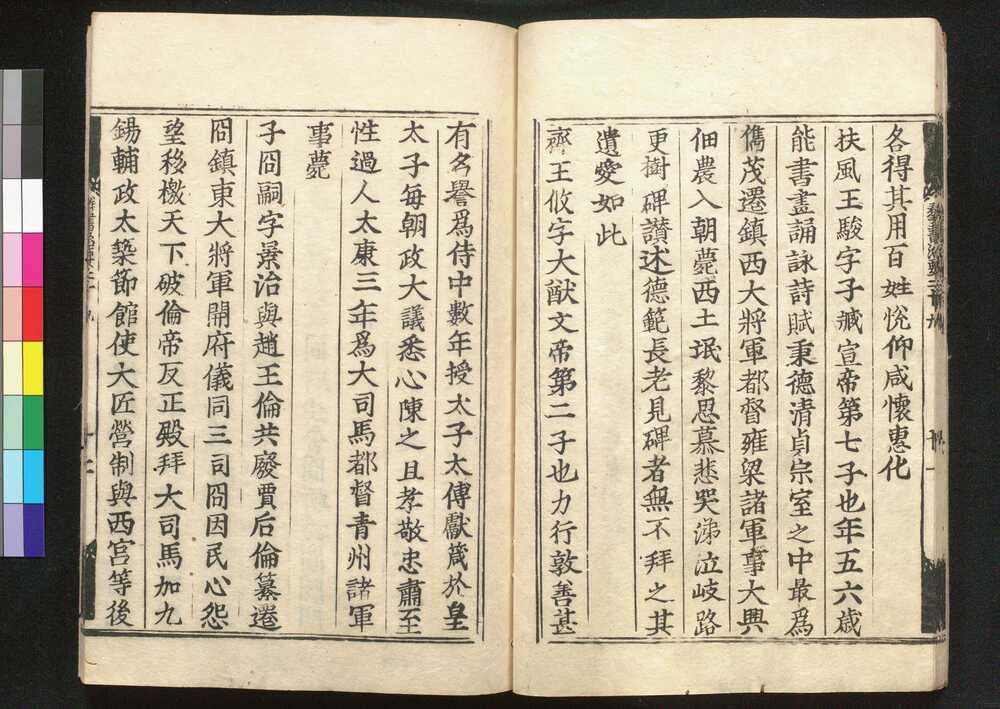 各得其用百姓悅仰咸懷惠化
扶風王駿字子臧宣帝第七子也年五六歲
能書畫誦詠詩賦秉德清貞宗室之中最爲
儁茂遷鎮西大將軍都督雍梁諸軍事大興
佃農入朝薨西土氓黎思慕悲哭涕泣岐路
更樹碑讃述德範長老見碑者無不拜之其
遺愛如此
齊王攸字大猷文帝第二子也力行敦善甚
有名譽爲侍中數年授太子太傅獻箴於皇
太子每朝政大議悉心陳之且孝敬忠肅至
性過人太康三年爲大司馬都督青州諸軍
事薨
子冏嗣字景治與趙王倫共廢賈后倫簒遷
冏鎮東大將軍開府儀同三司冏因民心怨
望移檄天下破倫帝反正殿拜大司馬加九
錫輔政太築節館使大匠營制與西宮等後